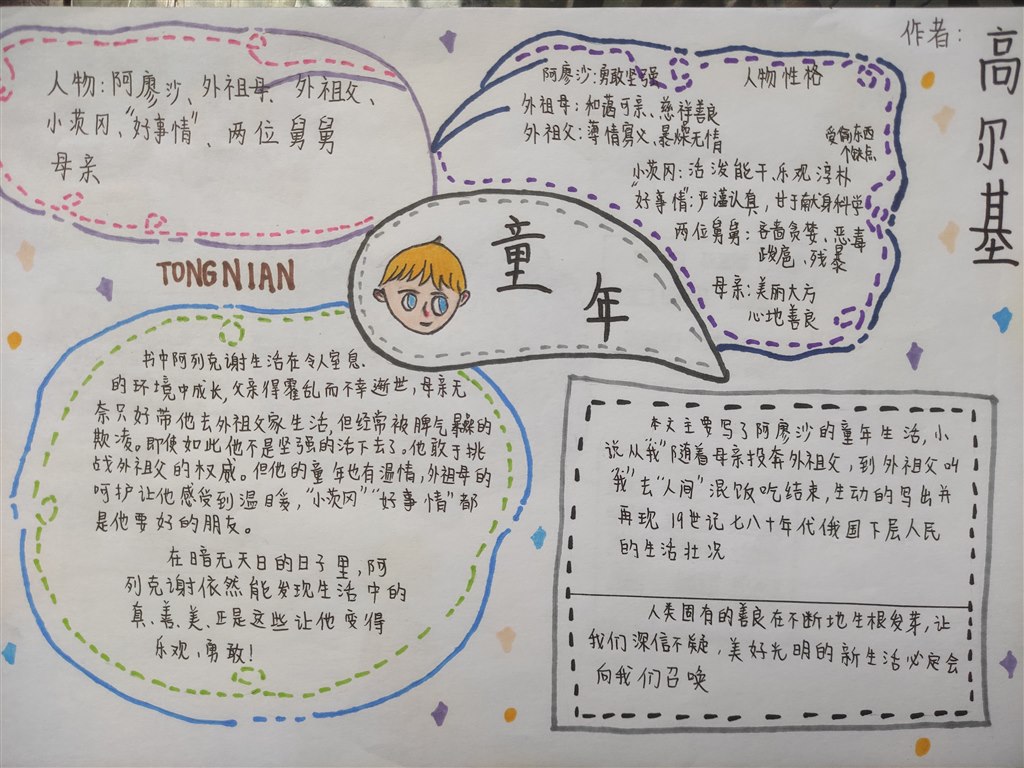 作者：
高尔基
人物：阿廖沙、外祖母、外祖父、
小茨冈、“好事情”、两位舅舅
母亲
阿廖沙：勇敢坚强
人物性格
外祖母：和蔼可亲、慈祥善良
外祖父：薄情寡义、暴燥无情
爱偷东西
个缺点
小茨冈：活泼能干、乐观淳朴
“好事情”：严谨认真，甘于献身科学
两位舅舅：吝啬贪婪、恶毒
跋扈、残暴
母亲：美丽大方
心地善良
童年
TONGNIAN
书中阿列克谢生活在令人窒息.
的环境中成长，父亲得霍乱而不幸逝世，母亲无
奈只好带他去外祖父家生活，但经常被脾气暴燥的
欺凌。即使如此他不是坚强的活下去了。他敢于挑
战外祖父的权威。但他的童年也有温情，外祖母的
呵护让他感受到温暖，“小茨冈”“好事情”都
是他要好的朋友。
在暗无天日的日子里，阿
列克谢依然能发现生活中的
真、善、美、正是这些让他变得
乐观、勇敢！
本文主要写了阿廖沙的童年生活，小
说从“我”随着母亲投奔外祖父，到外祖父叫
“我”去“人间”混饭吃结束，生动的写出并
再现19世记七八十年代俄国下层人民
的生活壮况
人类固有的善良在不断地生根发芽，让
我们深信不疑，美好光明的新生活必定会
向我们召唤